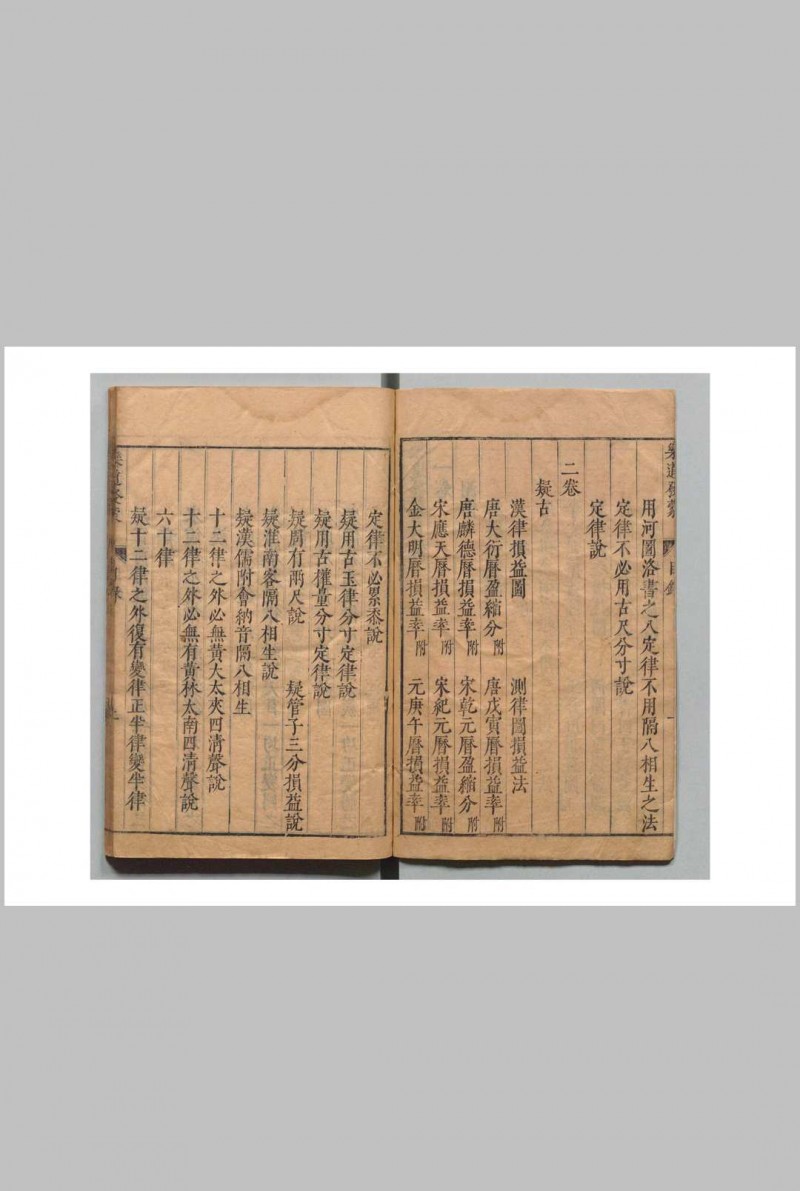 用河圖洛書之八定律不用隔八相生之法
定律不必用古尺分寸說
定律說
二卷
疑古
漢律損益圖 測律圖損益法
唐大衍曆盈縮分附 唐戊寅曆損益率附
唐麟德曆損益率附 宋乾元曆盈縮分附
宋應天曆損益率附 宋紀元曆損益率附
金大明曆損益率附 元庚午曆損益率附
定律不必累黍說
疑用古玉律分寸定律說
疑用古權量分寸定律說
疑周有兩尺說 疑管子三分損益說
疑淮南客隔八相生說
疑漢儒附會納音隔八相生
十二律之外必無黃大太夾四清聲說
十二律之外必無有黃林太南四清聲說
六十律
疑十二律之外復有變律正半律變半律
目錄